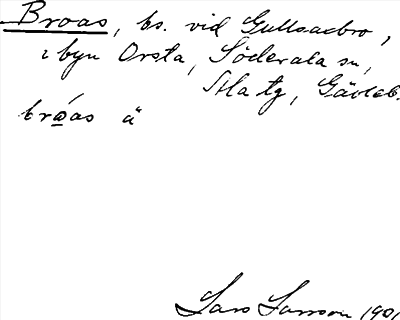 Broas, bs. vid Gullsaebro,
i byn Orsta, Söderala sn,
Ala tg, Gävleb.
bróas ä
Lars Larsson 1901